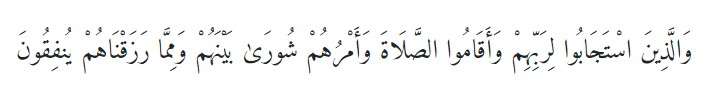 وَالَّذِينَ اسْتَجَابُوا لِرَبِّهِمْ وَأَقَامُوا الصَّلَاةَ وَأَمْرُهُمْ شُورَىٰ بَيْنَهُمْ وَمِمَّا رَزَقْنَاهُمْ يُنفِقُونَ